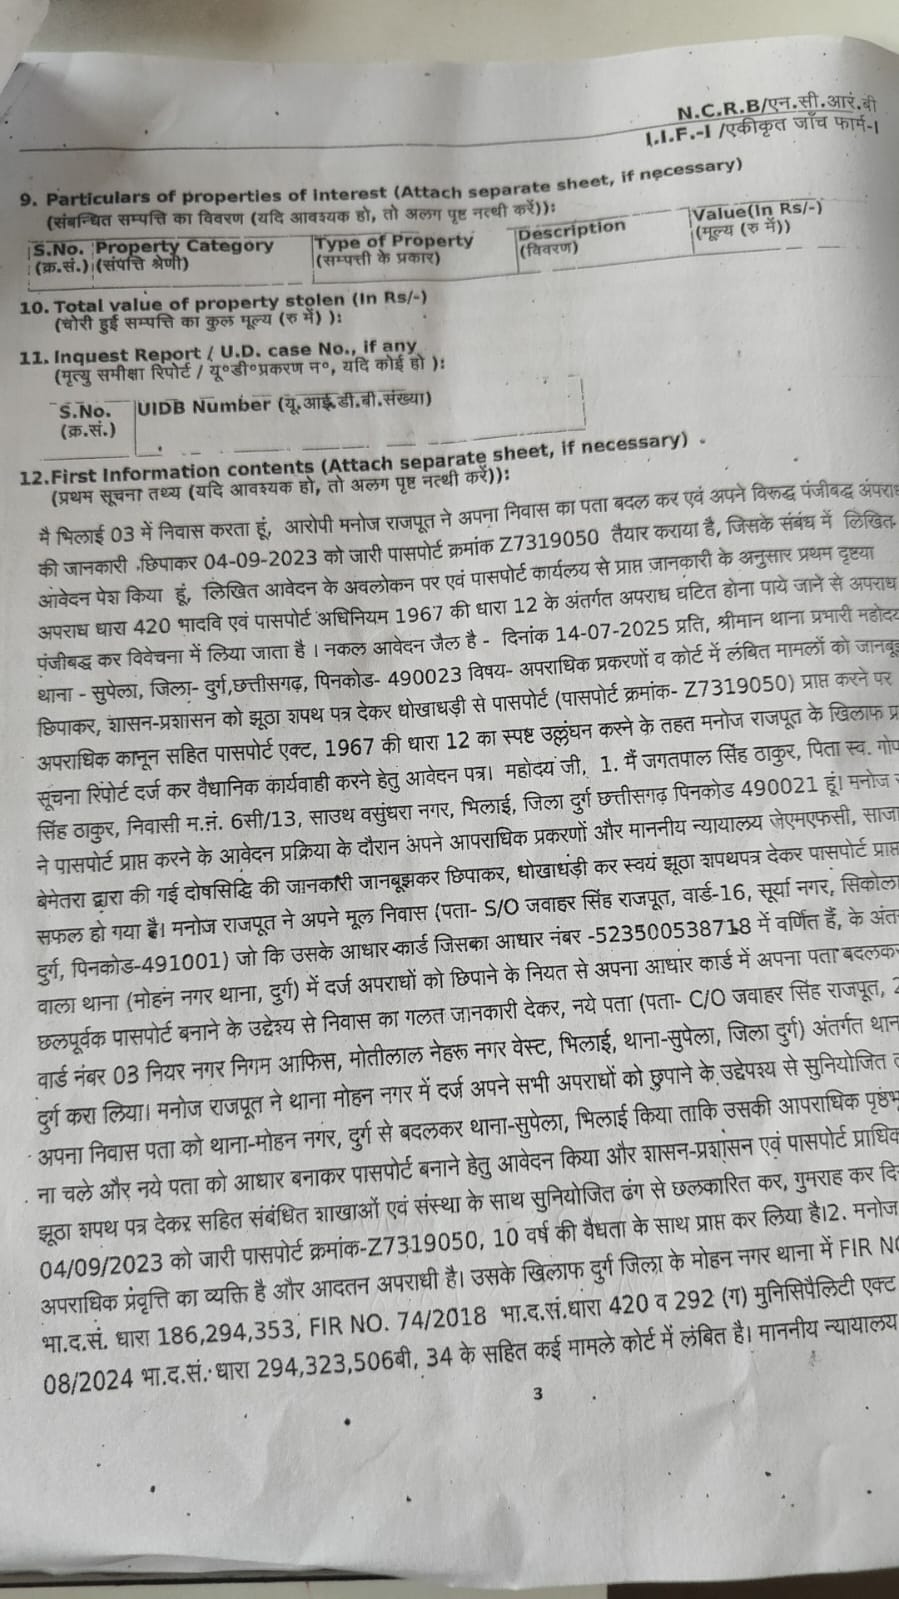 N.C.R.B/एन.सी.आर.बी
I.I.F.-I /एकीकृत जाँच फार्म-I
9. Particulars of properties of interest (Attach separate sheet, if necessary)
(संबन्धित सम्पत्ति का विवरण (यदि आवश्यक हो, तो अलग पृष्ट नत्थी करें)):
S.No. Property Category Type of Property Description Value(In Rs/-)
(क्र.सं.) (संपत्ति श्रेणी) (सम्पत्ती के प्रकार) (विवरण) (मूल्य (रु में))
10. Total value of property stolen (In Rs/-)
(चोरी हुई सम्पत्ति का कुल मूल्य (रु में) ):
11. Inquest Report / U.D. case No., if any
(मृत्यु समीक्षा रिपोर्ट / यू॰डी॰प्रकरण न॰, यदि कोई हो ):
S.No. UIDB Number (यू.आई.डी.बी.संख्या)
(क्र.सं.)
12.First Information contents (Attach separate sheet, if necessary)
(प्रथम सूचना तथ्य (यदि आवश्यक हो, तो अलग पृष्ट नत्थी करें)):
मै भिलाई 03 में निवास करता हूं, आरोपी मनोज राजपूत ने अपना निवास का पता बदल कर एवं अपने विरूद्ध पंजीबद्ध
की जानकारी छिपाकर 04-09-2023 को जारी पासपोर्ट क्रमांक Z7319050 तैयार कराया है, जिसके संबंध में लिखित
आवेदन पेश किया हूं, लिखित आवेदन के अवलोकन पर एवं पासपोर्ट कार्यलय से प्राप्त जानकारी के अनुसार प्रथम दृष्टया
अपराध धारा 420 भादवि एवं पासपोर्ट अधिनियम 1967 की धारा 12 के अंतर्गत अपराध घटित होना पाये जाने से अपराध
पंजीबद्ध कर विवेचना में लिया जाता है । नकल आवेदन जैल है - दिनांक 14-07-2025 प्रति, श्रीमान थाना प्रभारी
थाना - सुपेला, जिला- दुर्ग,छत्तीसगढ़, पिनकोड- 490023 विषय- अपराधिक प्रकरणों व कोर्ट में लंबित मामलों को
छिपाकर, शासन-प्रशासन को झूठा शपथ पत्र देकर धोखाधड़ी से पासपोर्ट (पासपोर्ट क्रमांक- Z7319050) प्राप्त करने पर
अपराधिक कानून सहित पासपोर्ट एक्ट, 1967 की धारा 12 का स्पष्ट उल्लंघन करने के तहत मनोज राजपूत के खिलाफ
सूचना रिपोर्ट दर्ज कर वैधानिक कार्यवाही करने हेतु आवेदन पत्र। महोदय जी, 1. मैं जगतपाल सिंह ठाकुर, पिता स्व.
सिंह ठाकुर, निवासी म.नं. 6सी/13, साउथ वसुंधरा नगर, भिलाई, जिला दुर्ग छत्तीसगढ़ पिनकोड 490021 हूं। मनोज
ने पासपोर्ट प्राप्त करने के आवेदन प्रक्रिया के दौरान अपने आपराधिक प्रकरणों और माननीय न्यायालय जेएमएफसी, साजा
बेमेतरा द्वारा की गई दोषसिद्धि की जानकारी जानबूझकर छिपाकर, धोखाधड़ी कर स्वयं झूठा शपथपत्र देकर पासपोर्ट प्राप्त
सफल हो गया है। मनोज राजपूत ने अपने मूल निवास (पता- S/O जवाहर सिंह राजपूत, वार्ड-16, सूर्या नगर, सिकोला
दुर्ग, पिनकोड-491001) जो कि उसके आधार कार्ड जिसका आधार नंबर -523500538718 में वर्णित हैं, के
वाला थाना (मोहन नगर थाना, दुर्ग) में दर्ज अपराधों को छिपाने के नियत से अपना आधार कार्ड में अपना पता बदलकर
छलपूर्वक पासपोर्ट बनाने के उद्देश्य से निवास का गलत जानकारी देकर, नये पता (पता- C/O जवाहर सिंह राजपूत,
वार्ड नंबर 03 नियर नगर निगम आफिस, मोतीलाल नेहरू नगर वेस्ट, भिलाई, थाना-सुपेला, जिला दुर्ग) अंतर्गत
दुर्ग करा लिया। मनोज राजपूत ने थाना मोहन नगर में दर्ज अपने सभी अपराधों को छुपाने के उद्देपश्य से सुनियोजित
अपना निवास पता को थाना-मोहन नगर, दुर्ग से बदलकर थाना-सुपेला, भिलाई किया ताकि उसकी आपराधिक
ना चले और नये पता को आधार बनाकर पासपोर्ट बनाने हेतु आवेदन किया और शासन-प्रशासन एवं पासपोर्ट
झूठा शपथ पत्र देकर सहित संबंधित शाखाओं एवं संस्था के साथ सुनियोजित ढंग से छलकारित कर, गुमराह कर
04/09/2023 को जारी पासपोर्ट क्रमांक-Z7319050, 10 वर्ष की वैधता के साथ प्राप्त कर लिया है।2. मनोज
अपराधिक प्रंवृत्ति का व्यक्ति है और आदतन अपराधी है। उसके खिलाफ दुर्ग जिला के मोहन नगर थाना में FIR
भा.द.सं. धारा 186,294,353, FIR NO. 74/2018 भा.द.सं.धारा 420 व 292 (ग) मुनिसिपैलिटी एक्ट
08/2024 भा.द.सं. धारा 294,323,506बी, 34 के सहित कई मामले कोर्ट में लंबित है। माननीय न्यायालय
3